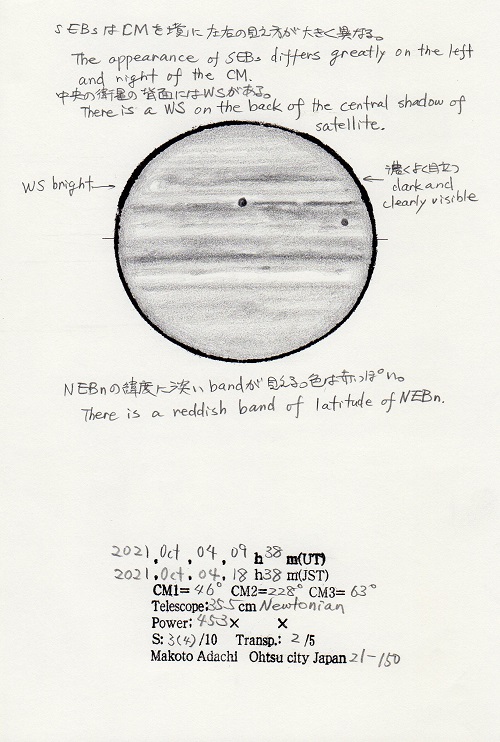 SEBsはCMを境に左右の見え方が大きく異なる。
The appearance of SEBs differs greatly on the left
and right of the CM.
中央の衛星の背面にはWSがある。
There is a WS on the back of the central shadow of
satellite.
WS bright
濃くよく目立つ
dark and
clearly visible
NEBnの緯度に淡いbandが見える。色は赤っぽい。
There is a reddish band of latitude of NEBn.
2021, Oct, 04, 09 h 38 m(UT)
2021, Oct, 04, 18 h 38 m(JST)
CM1= 46° CM2= 228° CM3= 63°
Telescope: 355 cm Newtonian
Power: 453× ×
S: 3(4) /10 Transp.: 2 /5
Makoto Adachi Ohtsu city Japan 21-150